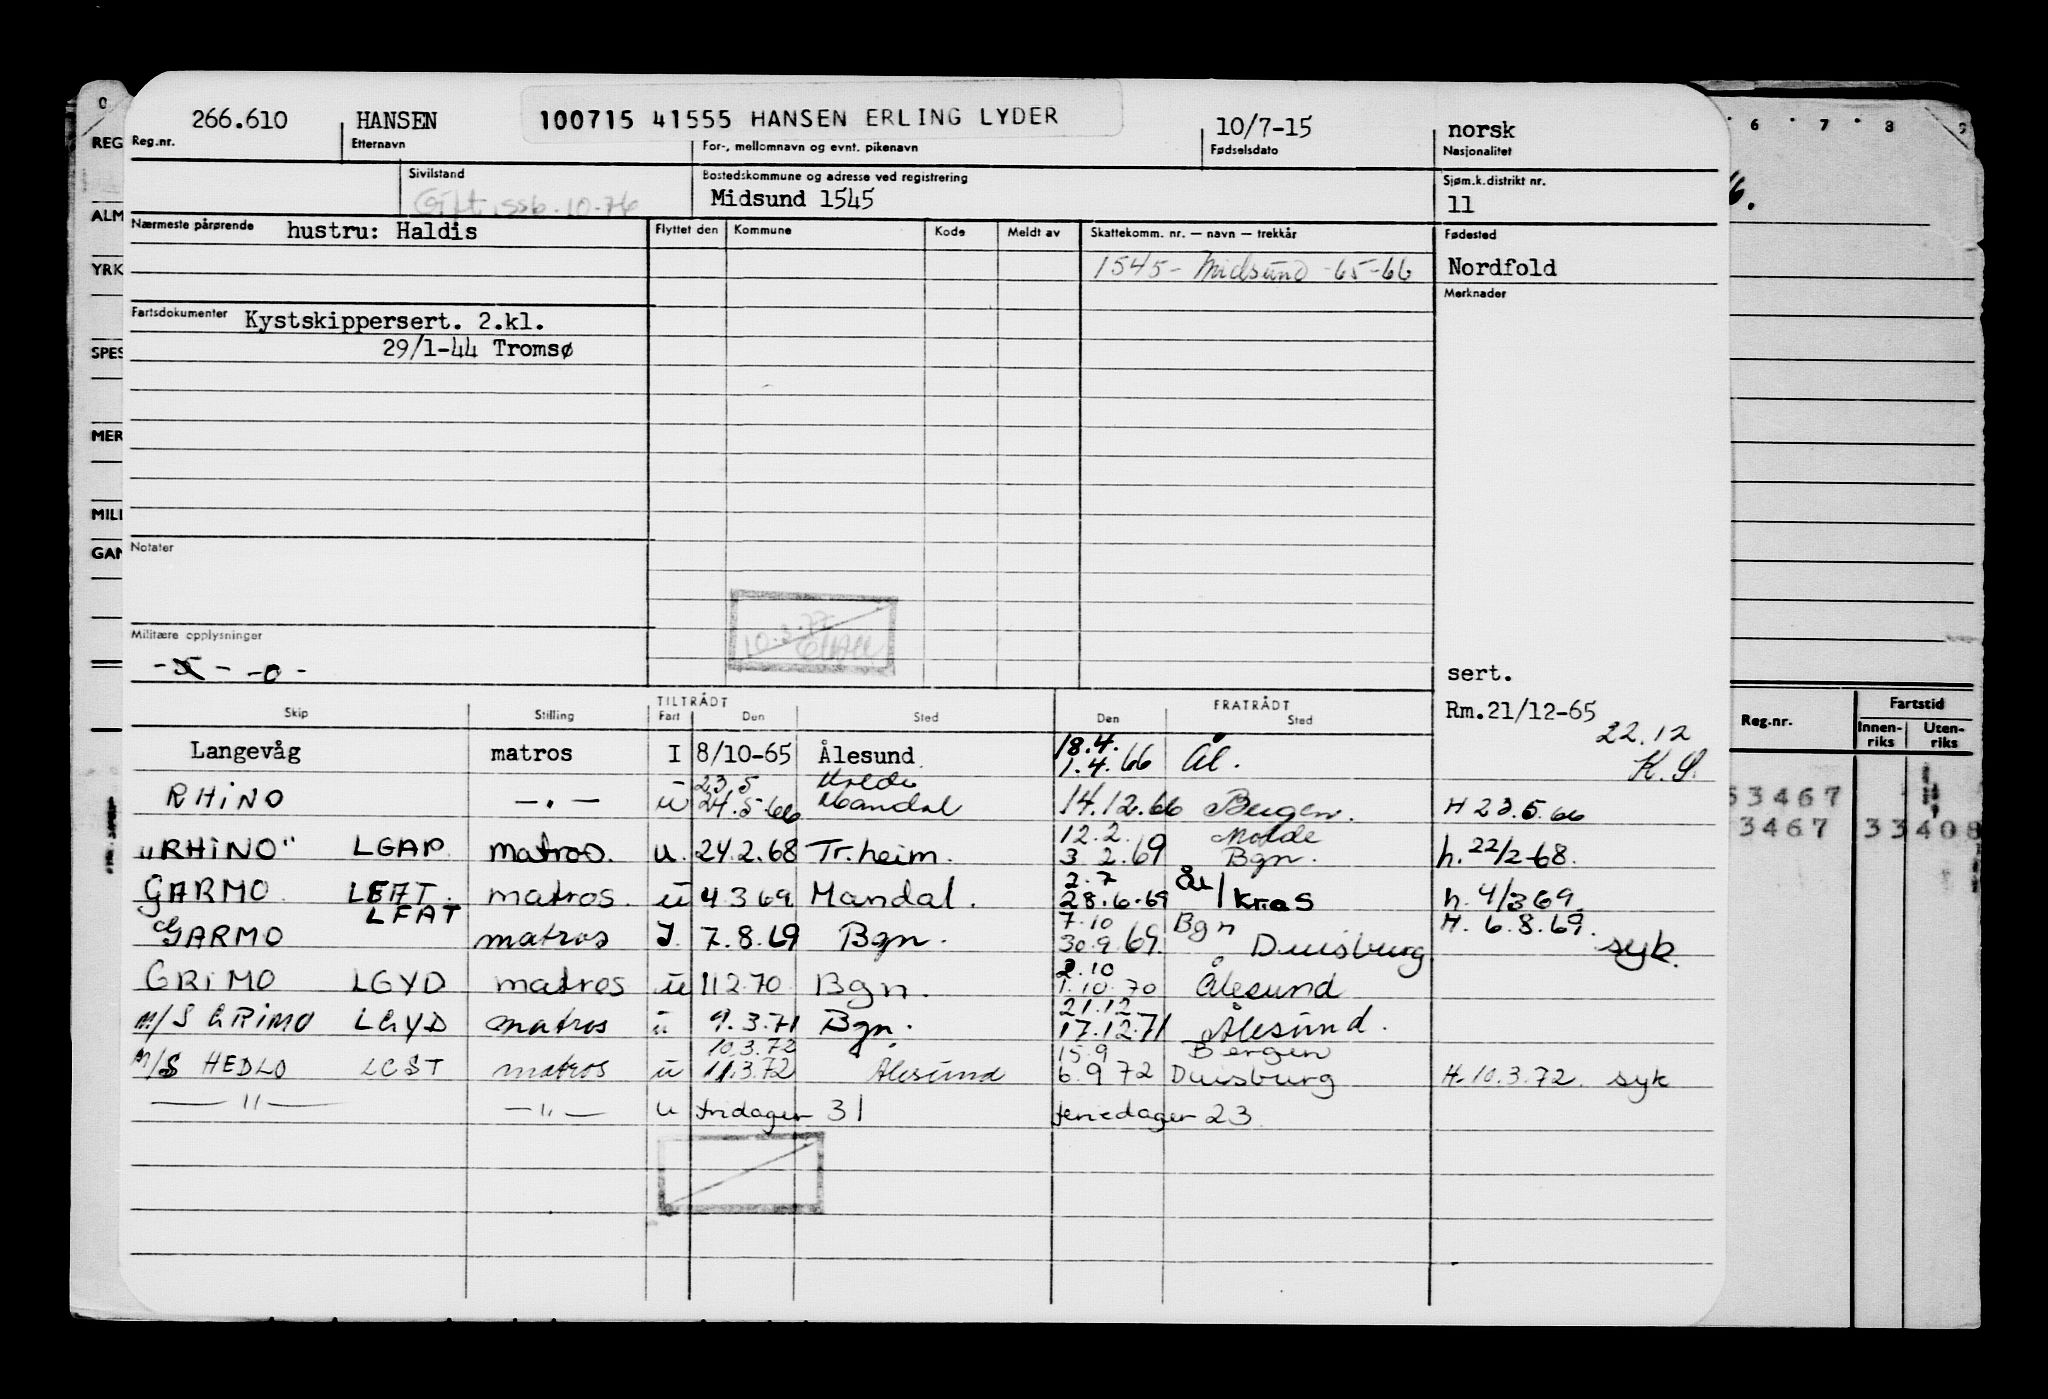 266.610 HANSEN 100715 41555 HANSEN ERLING LYDER 10/7-15 norsk
Reg.nr. Etternavn For-, mellomnavn og evnt. pikenavn Fødselsdato Nasjonalitet
Sivilstand Bostedskommune og adresse ved registrering Sjøm.k.distrikt nr.
Gift ssb. 10-76 Midsund 1545 11
Nærmeste pårørende hustru: Haldis Flyttet den Kommune Kode Meldt av Skattekomm. nr. — navn — trekkår Fødested
1545 - Midsund - 65-66 Nordfold
Merknader
Fartsdokumenter Kystskippersert. 2.kl.
29/1-44 Tromsø
Notater
10.3.77
Militære opplysninger
sert.
TILTRÅDT FRATRÅDT
Skip Stilling Fart Den Sted Den Sted
Rm.21/12-65
22.12
K.S.
18.4.
Langevåg matros I 8/10-65 Ålesund 1.4.66 Ål.
23.5 Molde
RHINO — . — u 24.5.66 Mandal 14.12.66 Bergen. H 23.5.66
12.2. Molde
"RHINO" LGAP matros. u. 24.2.68 Tr.heim. 3.2.69 Bgn. h. 22/2-68.
2.7 Ål
GARMO LEAT. matros. u 4.3 69 Mandal. 28.6.69 Kr.a S h. 4/3 69.
LFAT 7.10 Bgn H. 6.8.69.
GARMO matros I. 7.8.69 Bgn. 30.9.69. Duisburg syk.
2.10
GRIMO LGYD matros u 11 2.70 Bgn. 1.10.70 Ålesund
21.12
M/S GRIMO LGYD matros u 9.3.71 Bgn. 17.12.71 Ålesund.
10.3.72 15.9 Bergen
M/S HEDLO LCST matros u 11.3.72 Ålesund 6.9 72 Duisburg H. 10.3.72. syk
— " — — " — u fridager 31 feriedager 23
0
REG
ALM
YRK
SPES
MER
MILI
GAN
6 7 8 9
6.
Reg.nr. Fartstid
Innen-riks Uten-riks
53467
3467 33408